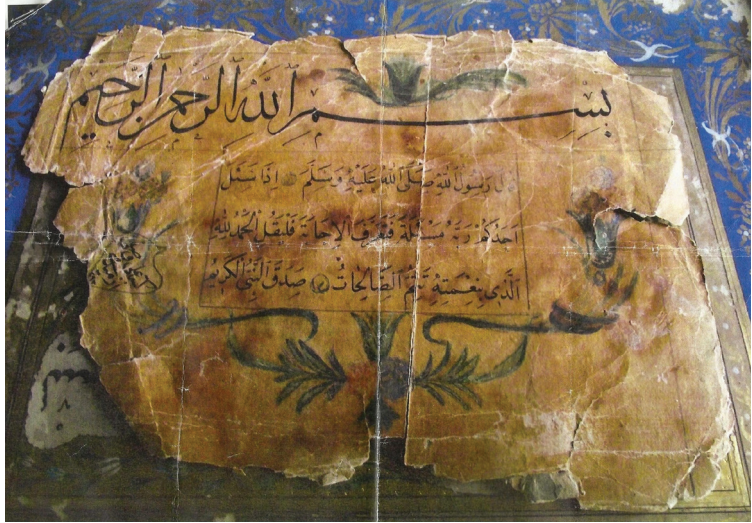 بِسْمِ اللهِ الرَّحْمٰنِ الرَّحِيمِ
رَسُولُ اللهِ صَلَّى اللهُ عَلَيْهِ وَسَلَّمَ اِذَا سَئَلَ
اَحَدُكُمْ رَبَّهُ مَسْئَلَةً فَتَعَرَّفَ الْاِجَابَةَ فَلْيَقُلْ اَلْحَمْدُ لِلّٰهِ
الَّذِى بِنِعْمَتِهِ تَتِمُّ الصَّالِحَاتُ صَدَقَ النَّبِىُّ الْكَرِيمُ